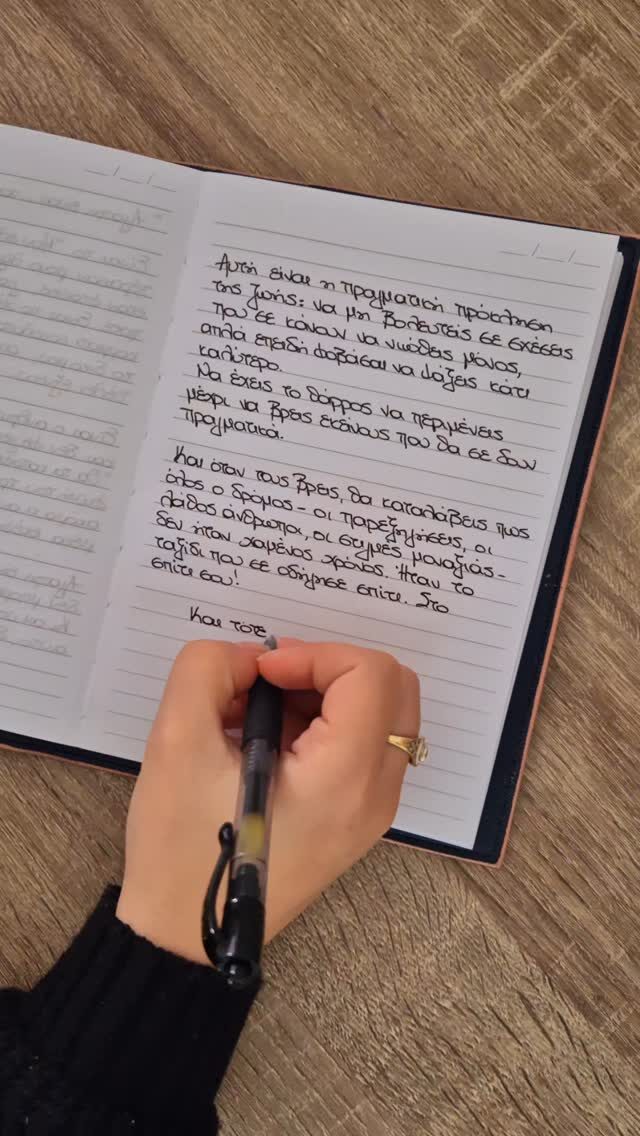 Αυτή είναι η πραγματική πρόκληση
της ζωής: να μη βολευτείς σε σχέσεις
που σε κάνουν να νιώθεις μόνος,
απλά επειδή φοβάσαι να ψάξεις κάτι
καλύτερο.
Να έχεις το θάρρος να περιμένεις
μέχρι να βρεις εκείνους που θα σε δουν
πραγματικά.
Και όταν τους βρεις, θα καταλάβεις πως
όλος ο δρόμος - οι παρεξηγήσεις, οι
λάθος άνθρωποι, οι στιγμές μοναξιάς -
δεν ήταν χαμένος χρόνος. Ήταν το
ταξίδι που σε οδήγησε σπίτι. Στο
σπίτι σου!
Και τότε